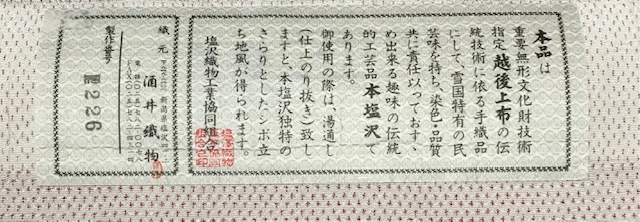 本品は
重要無形文化財技術
指定越後上布の伝
統技術に依る手織品
にして、雪国特有の民
芸味を持ち、染色、品質
共に責任以っておすゝ
め出来る趣味の伝統
的工芸品本塩沢で
あります。
御使用の際は、湯通し
(仕上のり抜き)致し
ますと、本塩沢独特の
さらりとしたシボ立
ち地風が得られます。
塩沢織物工業協同組合
織元
酒井織物
製作番号
2226